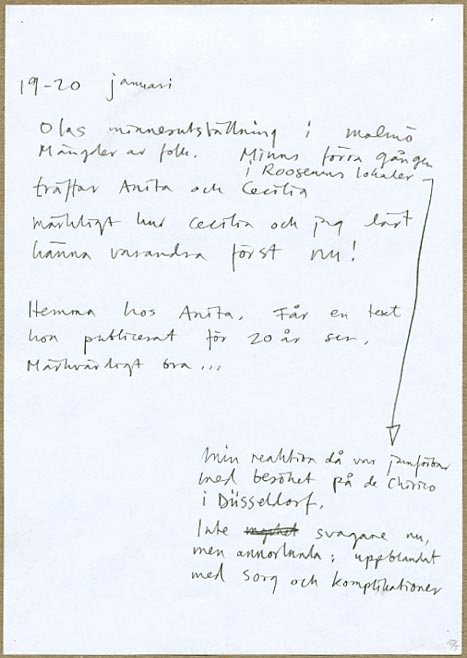 19-20 januari
Olas minnesutställning i Malmö
Mängder av folk. Minns förra gången
i Rooseums lokaler
träffar Anita och Cecilia
märkligt hur Cecilia och jag lärt
känna varandra först nu!
Hemma hos Anita. Får en text
hon publicerat för 20 år sen.
Märkvärdigt bra...
Min reaktion då var jämförbar
med besöket på de Chirico
i Düsseldorf.
Inte svagare nu,
men annorlunda; uppblandat
med sorg och komplikationer